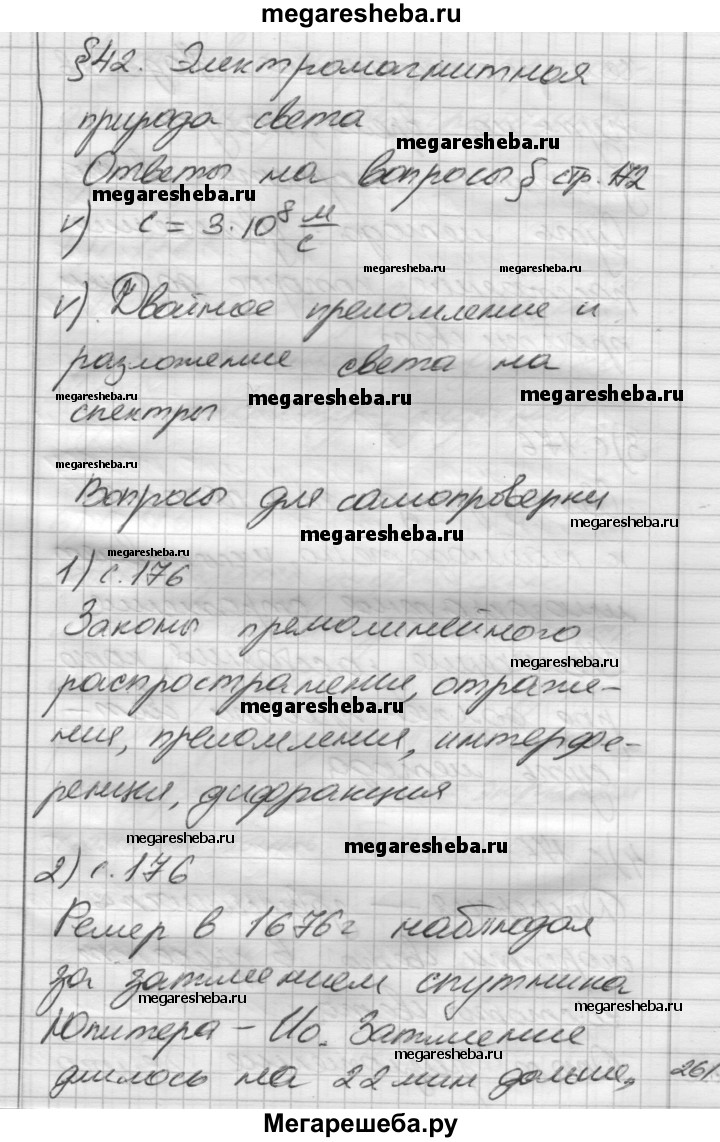 megaresheba.ru
§42. Электромагнитная
природа света
megaresheba.ru
Ответы на вопросы § стр. 172
megaresheba.ru
v) c = 3·10⁸ м/с
megaresheba.ru megaresheba.ru
v) Двойное преломление и
разложение света на
megaresheba.ru megaresheba.ru megaresheba.ru
спектры
megaresheba.ru
Вопросы для самопроверки
megaresheba.ru
megaresheba.ru
megaresheba.ru
1) с. 176
Законы прямолинейного
megaresheba.ru
распространения, отраже-
megaresheba.ru
ния, преломления, интерфе-
ренция, дифракция
megaresheba.ru megaresheba.ru
2) с. 176
Ремер в 1676г наблюдал
за затмением спутника
megaresheba.ru megaresheba.ru
Юпитера – Ио. Затмение
megaresheba.ru
длилось на 22 мин дольше, 261
Мегарешеба.ру